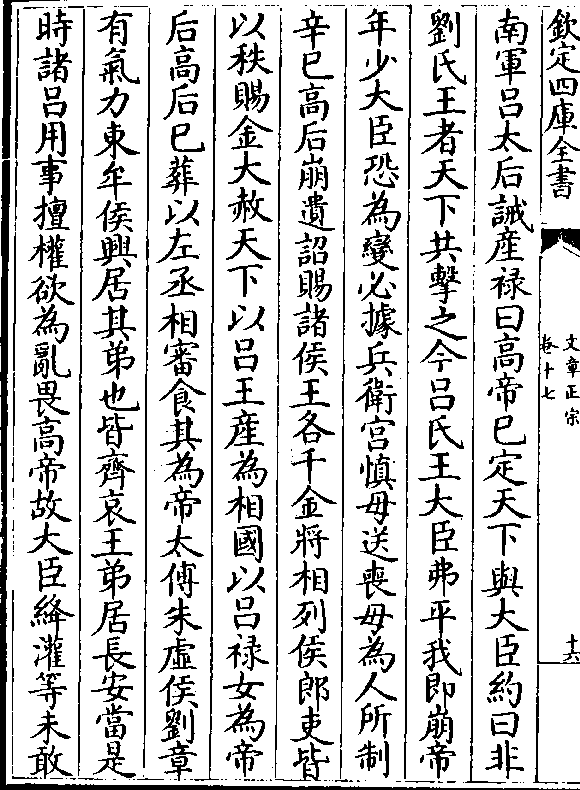 欽定四庫全書
文章正宗
卷十七
十六
南軍吕太后誡産禄曰髙帝已定天下與大臣約曰非
劉氏王者天下共擊之今吕氏王大臣弗平我即崩帝
年少大臣恐為變必據兵衛宫慎毋送喪毋為人所制
辛巳髙后崩遺詔賜諸侯王各千金將相列侯郎吏皆
以秩賜金大赦天下以吕王産為相國以吕禄女為帝
后髙后已葬以左丞相審食其為帝太傅朱虛侯劉章
有氣力東牟侯興居其弟也皆齊哀王弟居長安當是
時諸吕用事擅權欲為亂畏髙帝故大臣絳灌等未敢